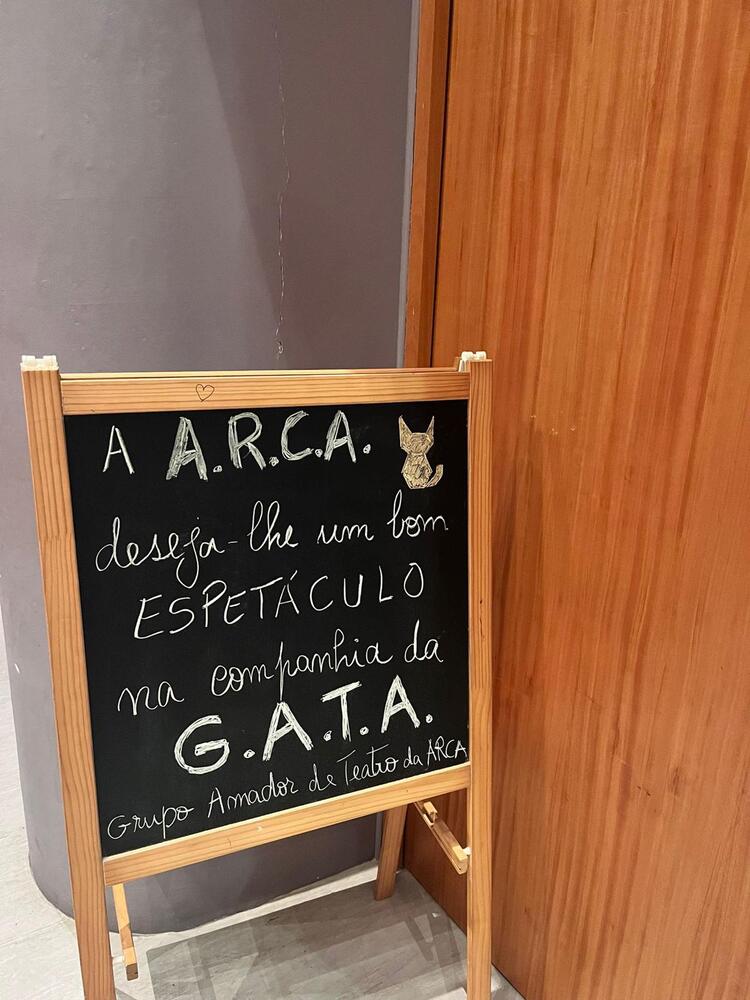 A A.R.C.A.
deseja-lhe um bom
ESPETÁCULO
na companhia da
G.A.T.A.
Grupo Amador de Teatro da ARCA